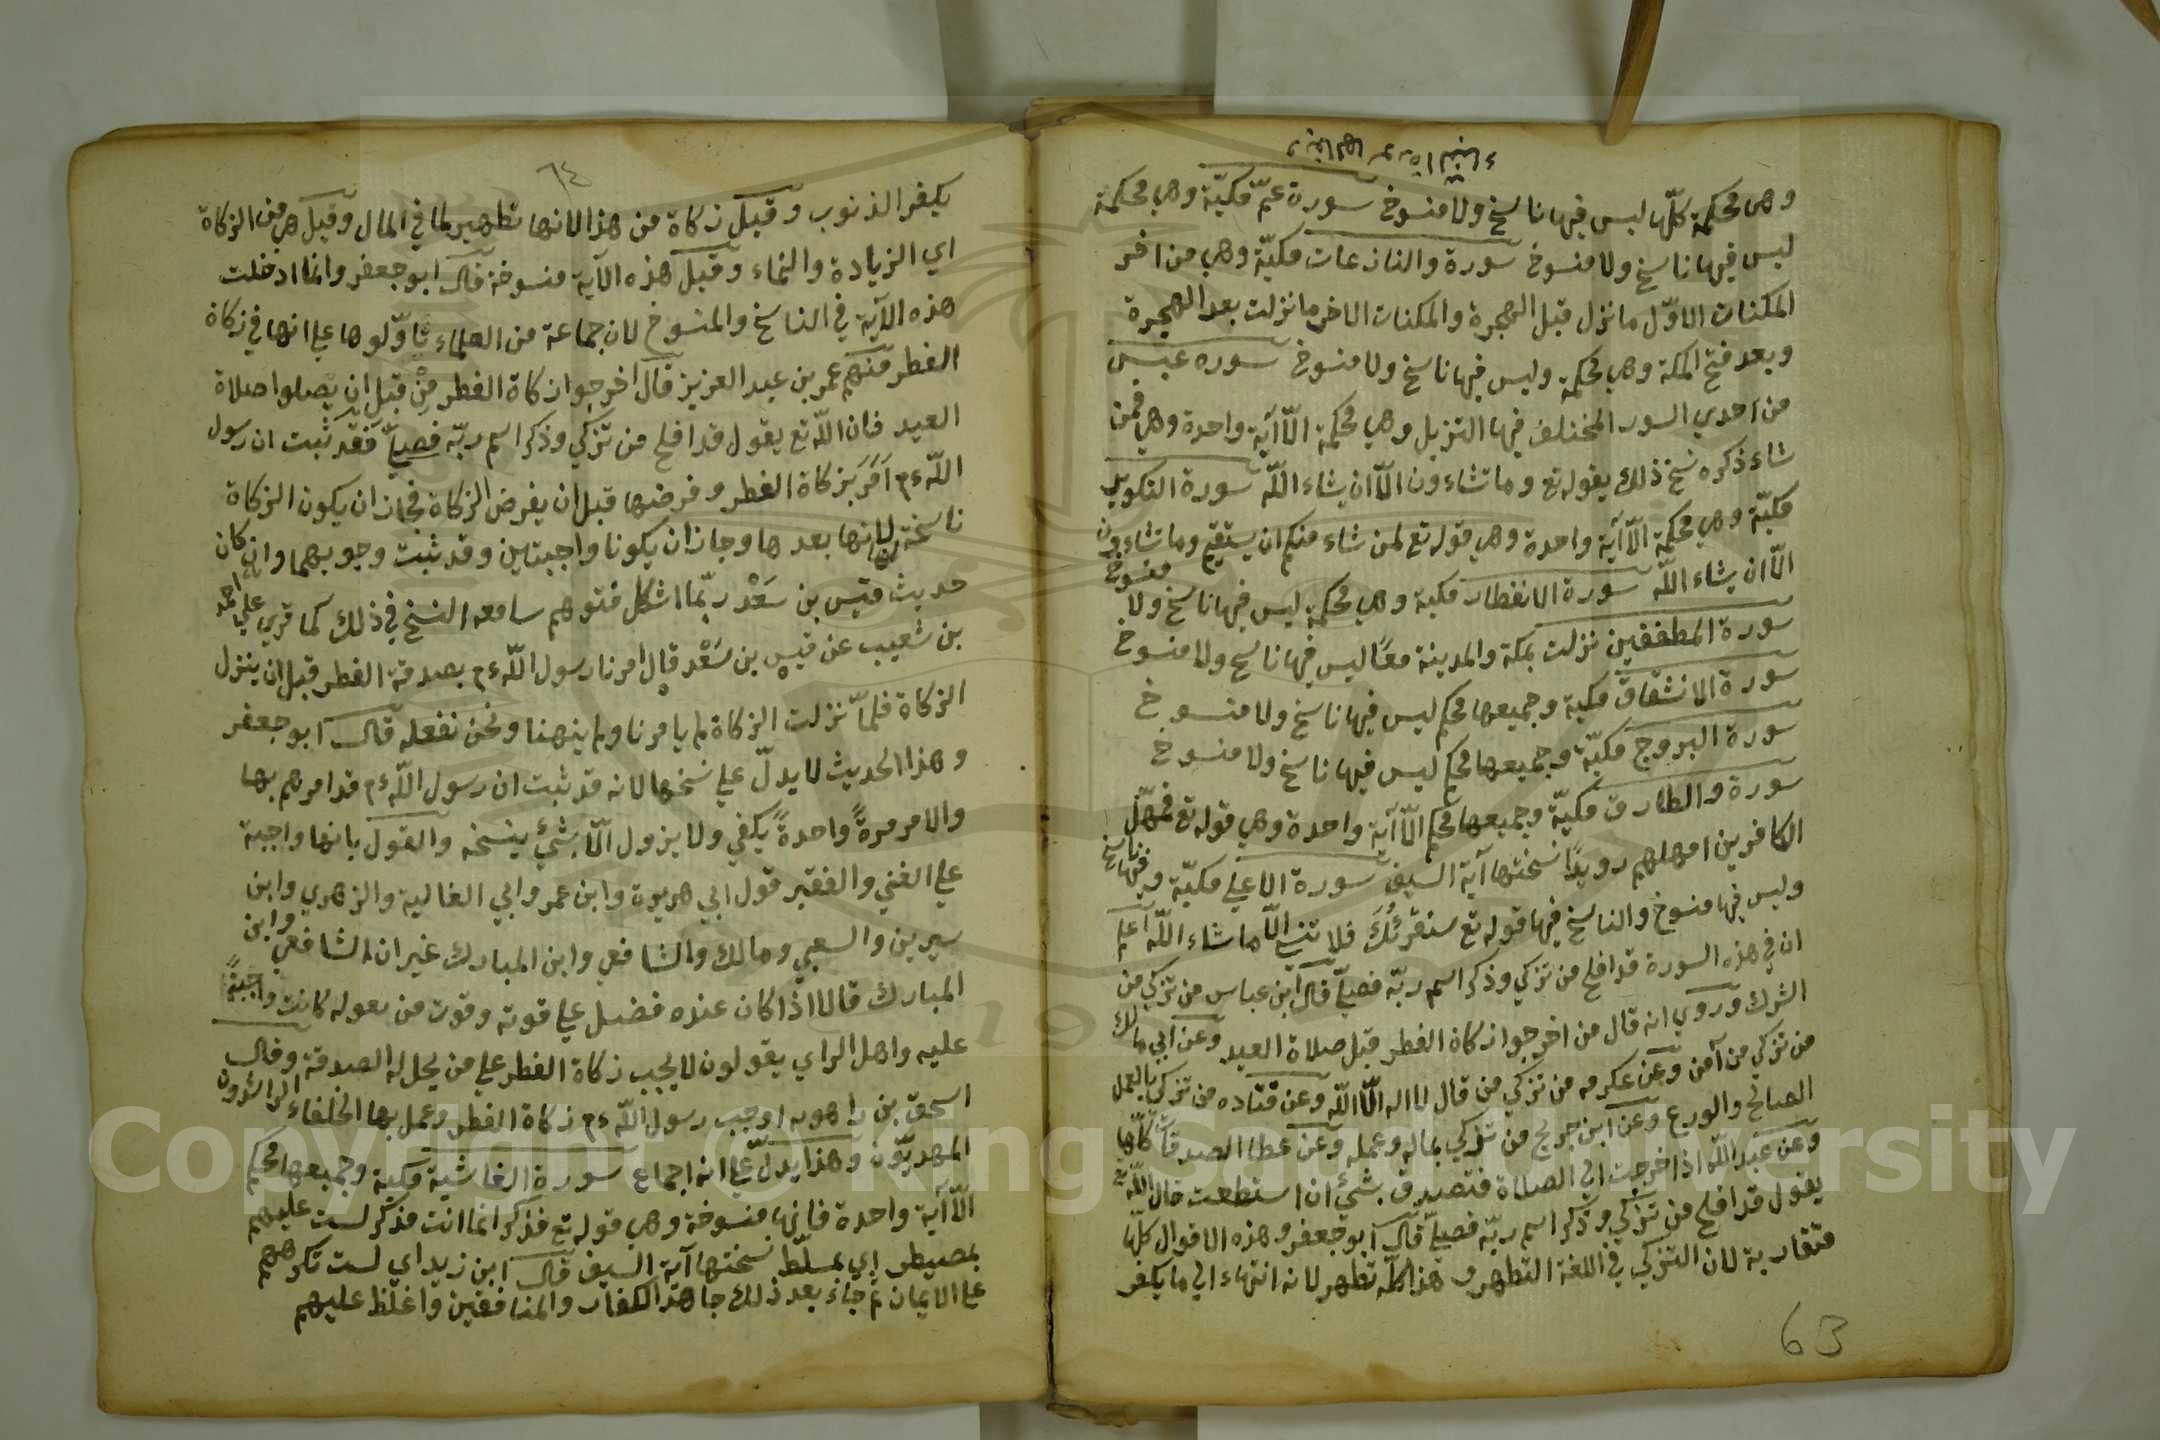 وهي محكمة كلّها ليس فيها ناسخ ولا منسوخ سورة عمّ مكيّة وهي محكمة
ليس فيها ناسخ ولا منسوخ سورة والنازعات مكيّة وهي من اخر
المكنات الاوّل ما نزل قبل الهجرة والمكنات الاخر ما نزلت بعد الهجرة
وبعد فتح المكة وهي محكمة وليس فيها ناسخ ولا منسوخ سوره عبس
من احدي السور المختلف فيها التنزيل وهي محكمة الّا آية واحدة وهي فمن
شاء ذكره نسخ ذلك بقوله تع وما تشاءون الّا ان يشاء اللّه سورة التكوير
مكيّة وهي محكمة الّا آية واحدة وهي قوله تع لمن شاء منكم ان يستقيم وما تشاءون
الّا ان يشاء اللّه سورة الانفطار مكية وهي محكمة ليس فيها ناسخ ولا منسوخ
سورة المطففين نزلت بمكة والمدينة معًا ليس فيها ناسخ ولا منسوخ
سورة الانشقاق مكية وجميعها محكم ليس فيها ناسخ ولا منسوخ
سورة البروج مكيّة وجميعها محكم ليس فيها ناسخ ولا منسوخ
سورة والطارق مكيّة وجميعها محكم الّا آية واحدة وهي قوله تع فمهّل
الكافرين امهلهم رويدًا نسختها آية السيف سورة الاعلي مكيّة وفيها ناسخ
وليس فيها منسوخ والناسخ فيها قوله تع سنقرئك فلا تنسي الّا ما شاء اللّه اعلم
ان في هذه السورة قد افلح من تزكي وذكر اسم ربّه فصلّي قال ابن عباس من تزكي من
الشرك وروي انه قال من اخرجوا زكاة الفطر قبل صلاة العيد وعن ابي مالك
من تزكي من آمن وعن عكرمه من تزكي من قال لا اله الّا اللّه وعن قتاده من تزكي بالعمل
الصالح والورع وعن ابن جريج من تزكي بماله وعمله وعن عطا الصدقات كلّها
وعن عبد اللّه اذا خرجت الي الصلاة فتصدق بشئ ان استطعت فان اللّه تع
يقول قد افلح من تزكي وذكر اسم ربّه فصلّي قال ابو جعفر وهذه الاقوال كلّها
متقاربة لان التزكي في اللغة التطهر وهذا كلّه تطهر لانه انتهاء الي ما يكفر
63
٦٤
يكفر الذنوب وقيل زكاة من هذا لانها تطهير لما في المال وقيل هي من الزكاة
اي الزيادة والنماء وقيل هذه الآية منسوخة قال ابو جعفر وانما ادخلت
هذه الآية في الناسخ والمنسوخ لان جماعة من العلماء تاوّلوها علي انها في زكاة
الفطر منهم عمر بن عبد العزيز قال اخرجوا زكاة الفطر مِنْ قبل ان يصلوا صلاة
العيد فان اللّه تع يقول قد افلح من تزكي وذكر اسم ربّه فصلّي فقد ثبت ان رسول
اللّه ءم اَمَرَ بزكاة الفطر وفرضها قبل ان يفرض الزكاة فجاز ان يكون الزكاة
ناسخة لانها بعدها وجاز ان يكونا واجبتين وقد ثبت وجوبهما وان كان
حديث قيس بن سَعْد ربّما اشكل فتوهم سامعه النسخ في ذلك كما قري علي احمد
بن شعيب عن قيس بن سَعْد قال امرنا رسول اللّه ءم بصدقة الفطر قبل ان ينزل
الزكاة فلمّا نزلت الزكاة لم يامرنا ولم ينهنا ونحن نفعله قال ابو جعفر
وهذا الحديث لا يدلّ علي نسخها لانه قد ثبت ان رسول اللّه ءم قد امرهم بها
والامر مرةً واحدةً يكفي ولا يزول الّا بشئ ينسخه والقول بانها واجبة
علي الغني والفقير قول ابي هريرة وابن عمر وابي العالية والزهري وابن
سيرين والسعبي ومالك والشافعي وابن المبارك غير ان الشافعي وابن
المبارك قالا اذا كان عنده فضل علي قوته وقوت من يعوله كانت واجبةً
عليه واهل الراي يقولون لا يجب زكاة الفطر علي من يحل له الصدقة وقال
اسحق بن راهويه اوجب رسول اللّه ءم زكاة الفطر وعمل بها الخلفاء الراشدون
المهديّون وهذا يدلّ علي انه اجماع سورة الغاشية مكية وجميعها محكم
الّا آية واحدة فانها منسوخة وهي قوله تع فذكر انما انت مذكر لست عليهم
بمصيطر اي بمسلّط نسختها آية السيف قال ابن زيد اي لست تكرههم
علي الايمان ثم جاء بعد ذلك جاهد الكفار والمنافقين واغلظ عليهم
Copyright © King Saud University